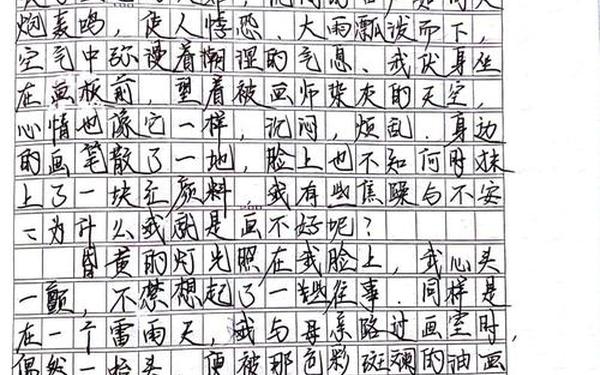 炮轰鸣，使人悸恐．大雨瓢泼而下，
空气中弥漫着潮湿的气息．我伏身坐
在画板前，望着被画师染灰的天空，
心情也像它一样，沉闷，烦乱．身边
的画笔散了一地，脸上也不知何时抹
上了一块红颜料．我有些焦躁与不安
：为什么我就是画不好呢？
昏黄的灯光照在我脸上，我心头
一颤，不禁想起了一些往事．同样是
在一个雷雨天，我与母亲路过画室时，
偶然一抬头，便被那色彩斑斓的油画